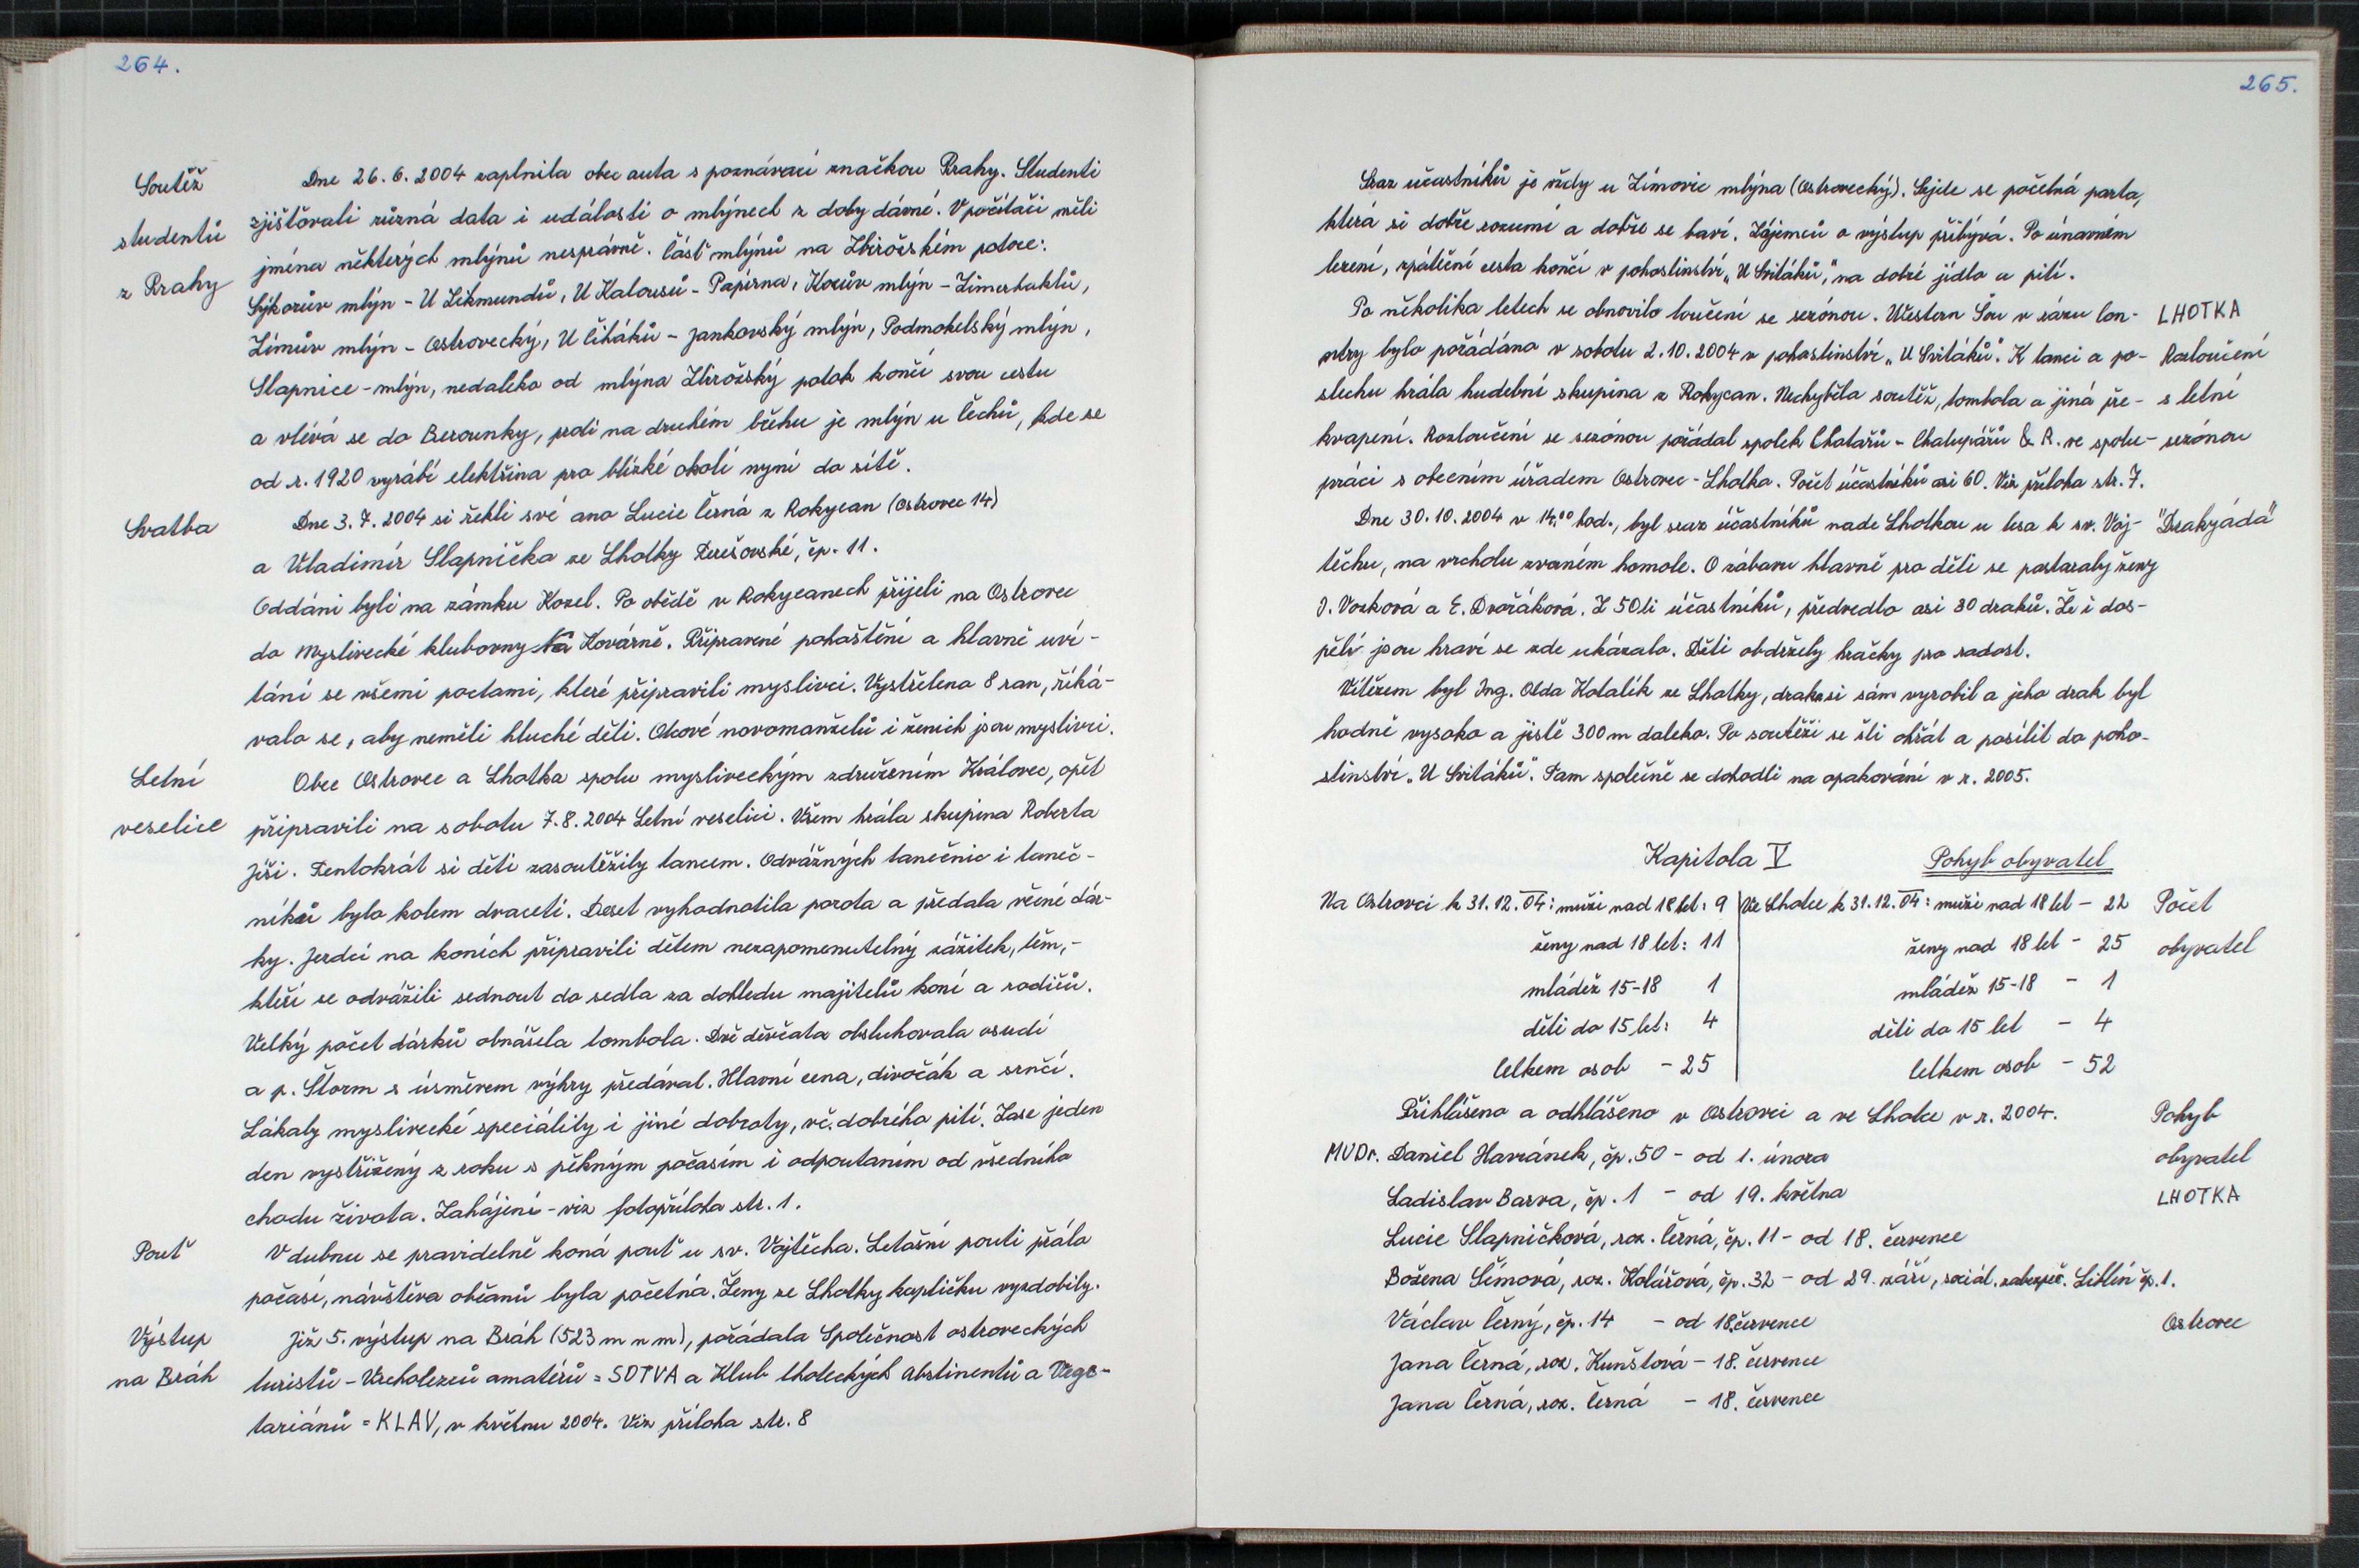 264.
Soutěž
studentů
z Prahy
Dne 26.6.2004 zaplnila obec auta s poznávací značkou Prahy. Studenti
zjišťovali různá data i události o mlýnech z doby dávné. V počítači měli
jména některých mlýnů nesprávně. Část mlýnů na Zbirožském potoce:
Sýkorův mlýn - U Zikmundů, U Kalousů - Papírna, Kocův mlýn -
Zímův mlýn - Ostrovecký, U Čiháků - Jankovský mlýn, Podmokelský mlýn,
Slapnice - mlýn, nedaleko od mlýna Zbirožský potok končí svou cestu
a vlévá se do Berounky, proti na druhém břehu je mlýn u Čechů, kde se
od r. 1920 vyrábí elektřina pro blízké okolí nyní do sítě.
Svatba
Dne 3.7.2004 si řekli své ano Lucie Černá z Rokycan (Ostrovec 14)
a Vladimír Slapnička ze Lhotky Terešovské, čp. 11.
Oddáni byli na zámku Kozel. Po obědě v Rokycanech přijeli na Ostrovec
do Myslivecké klubovny Na Kovárně. Připravené pohoštění a hlavně uví-
tání se všemi poctami, které připravili myslivci. Vystřeleno 8 ran, říká-
valo se, aby neměli hluché děti. Otcové novomanželů i ženich jsou myslivci.
Letní
veselice
Obec Ostrovec a Lhotka spolu mysliveckým sdružením Královec, opět
připravili na sobotu 7.8.2004 Letní veselici. Všem hrála skupina Roberta
Jíši. Tentokrát si děti zasoutěžily tancem. Odvážných tanečnic i taneč-
níků bylo kolem dvaceti. Deset vyhodnotila porota a předala věcné dár-
ky. Jezdci na koních připravili dětem nezapomenutelný zážitek, těm,-
kteří se odvážili sednout do sedla za dohledu majitelů koní a rodičů.
Velký počet dárků obnášela tombola. Dvě děvčata obsluhovala osudí
a p. Štorm s úsměvem výhry předával. Hlavní cena, divočák a srnčí.
Lákaly myslivecké speciálity i jiné dobroty, vč. dobrého pití. Zase jeden
den vystřižený z roku s pěkným počasím i odpoutaním od všedního
chodu života. Zahájení - viz fotopříloha str. 1.
Pouť
V dubnu se pravidelně koná pouť u sv. Vojtěcha. Letošní pouti přálo
počasí, návštěva občanů byla početná. Ženy ze Lhotky kapličku vyzdobily.
Výstup
na Bráh
Již 5. výstup na Bráh (523 m n m), pořádala Společnost ostroveckých
turistů - Vrcholezců amatérů = SOTVA a Klub lhoteckých Abstinentů a Vege-
tariánů = KLAV, v květnu 2004. Viz příloha str. 8
265.
Sraz účastníků je vždy u Zímovic mlýna (Ostrovecký). Sejde se početná parta,
která si dobře rozumí a dobře se baví. Zájemců o výstup přibývá. Po únavném
lezení, zpáteční cesta končí v pohostinství "U Sviťáků," na dobré jídlo a pití.
Po několika letech se obnovilo loučení se sezónou. Western Šou v rázu kon- LHOTKA
ntry bylo pořádáno v sobotu 2.10.2004 v pohostinství "U Sviťáků". K tanci a po- Rozloučení
slechu hrála hudební skupina z Rokycan. Nechyběla soutěž, tombola a jiná pře- s letní
kvapení. Rozloučení se sezónou pořádal spolek Chatařů - Chalupářů & R. ve spolu- sezónou
práci s obecním úřadem Ostrovec - Lhotka. Počet účastníků asi 60. Viz příloha str. 7.
Dne 30.10.2004 v 14,00 hod., byl sraz účastníků nade Lhotkou u lesa k sv. Voj- "Drakyáda"
těchu, na vrcholu zvaném homole. O zábavu hlavně pro děti se postaraly ženy
J. Vozková a E. Dvořáková. Z 50ti účastníků, předvedlo asi 30 draků. Že i dos-
pělí jsou hraví se zde ukázalo. Děti obdržely hračky pro radost.
Vítězem byl Ing. Olda Kotalík ze Lhotky, draka si sám vyrobil a jeho drak byl
hodně vysoko a jistě 300 m daleko. Po soutěži se šli ohřát a posílit do poho-
stinství "U Sviťáků". Tam společně se dohodli na opakování v r. 2005.
Kapitola V Pohyb obyvatel
Na Ostrovci k 31.12.04: muži nad 18 let: 9 Ve Lhotce k 31.12.04: muži nad 18 let - 22 Počet
ženy nad 18 let: 11 ženy nad 18 let - 25 obyvatel
mládež 15-18 1 mládež 15-18 - 1
děti do 15 let: 4 děti do 15 let - 4
Celkem osob - 25 Celkem osob - 52
Přihlášeno a odhlášeno v Ostrovci a ve Lhotce v r. 2004. Pohyb
MVDr. Daniel Havránek, čp. 50 - od 1. února obyvatel
Ladislav Barva, čp. 1 - od 19. května LHOTKA
Lucie Slapničková, roz. Černá, čp. 11 - od 18. července
Božena Šímová, roz. Kolářová, čp. 32 - od 29. září, sociál. zabezpeč. Liblín čp. 1.
Václav Černý, čp. 14 - od 18. července Ostrovec
Jana Černá, roz. Kunštová - 18. července
Jana Černá, roz. Černá - 18. července